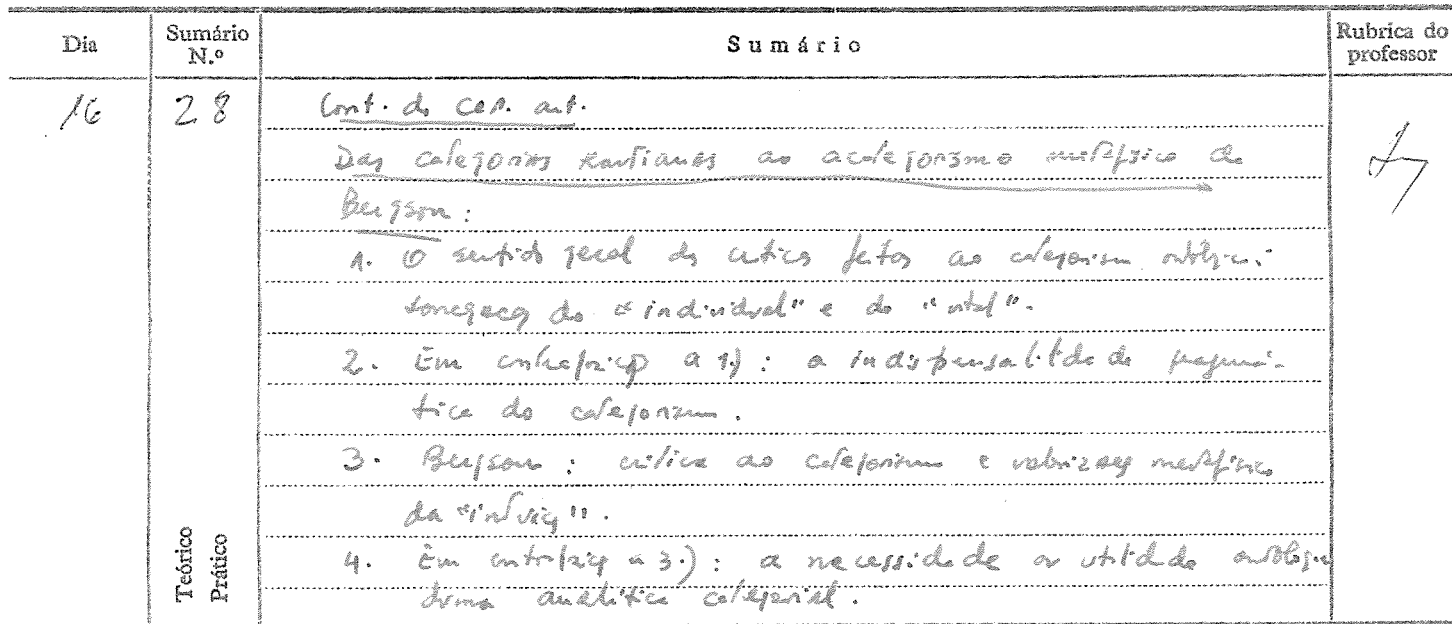 Dia
Sumário N.º
Sumário
Rubrica do professor
16
28
Cont. da cap. ant.
Das categorias kantianas ao acategorismo metafísico de
Bergson:
1. O sentido geral das críticas feitas ao categorismo ontológico:
do "individual" e do "vital".
2. Em contraposição a 1): a indispensabilidade pragmá-
tica do categorismo.
3. Bergson: crítica ao categorismo e valorização metafísica
da "intuição".
4. Em contraposição a 3.): a necessidade ou utilidade ontológica
duma analítica categorial.
Teórico
Prático